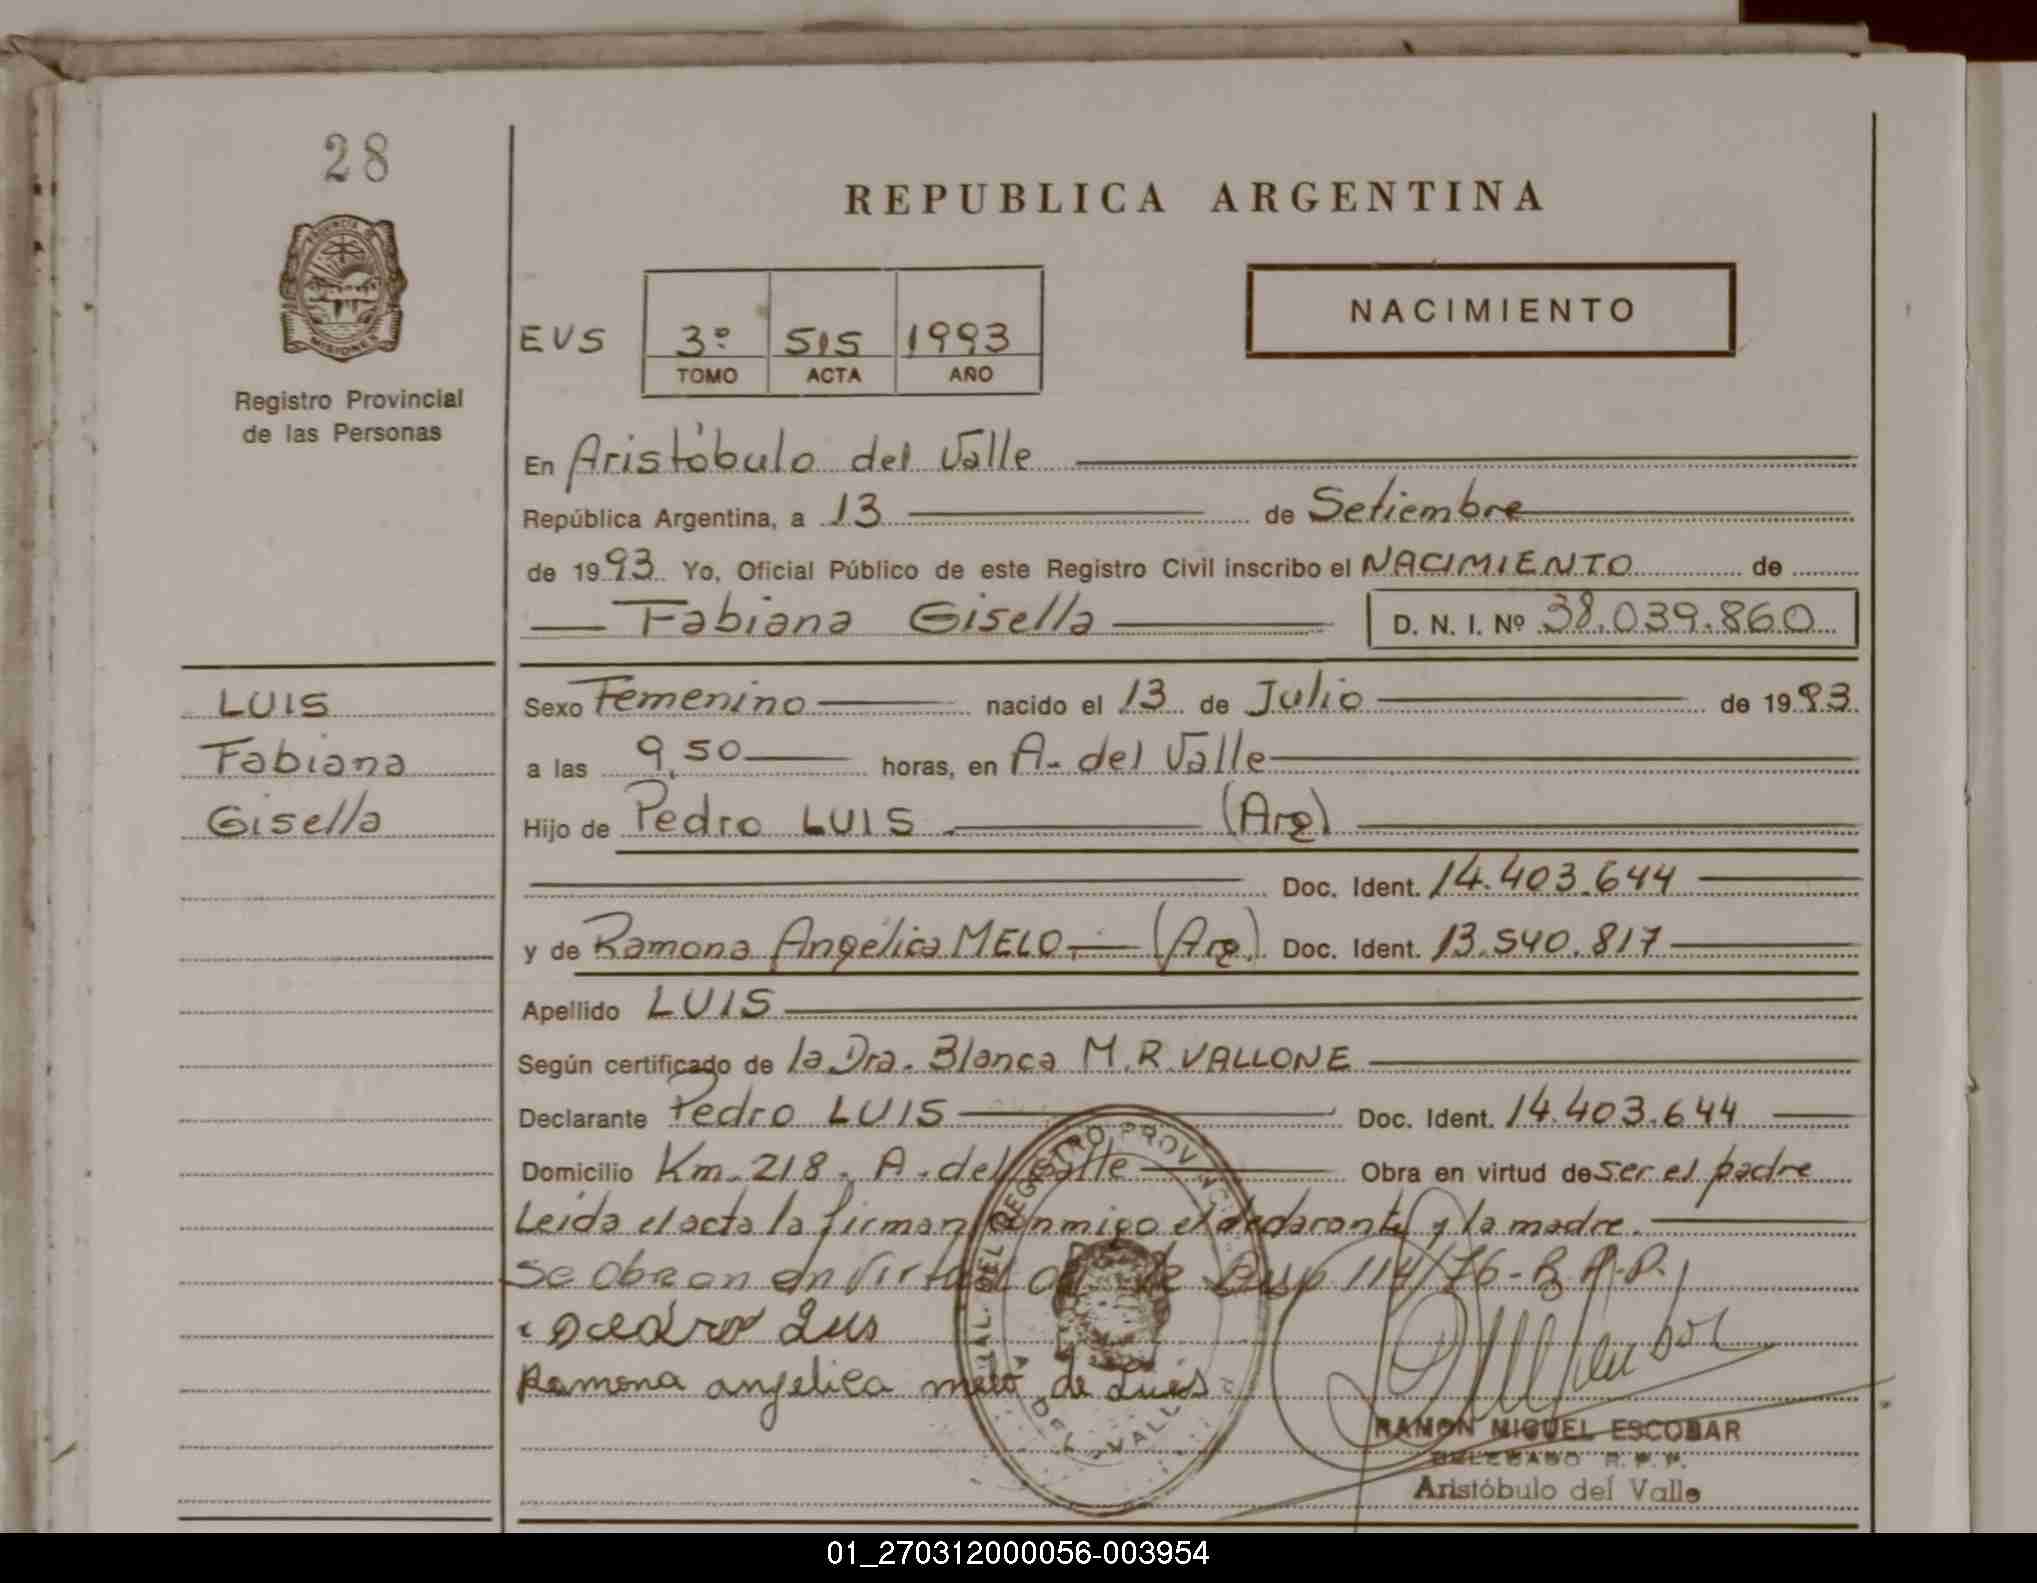 28
PROVINCIA DE
MISIONES
Registro Provincial
de las Personas
REPUBLICA ARGENTINA
NACIMIENTO
EVS 3º 515 1993
TOMO ACTA AÑO
En Aristóbulo del Valle
República Argentina, a 13 de Setiembre
de 1993 Yo, Oficial Público de este Registro Civil inscribo el NACIMIENTO de
Fabiana Gisella D. N. I. Nº 38.039.860
LUIS
Fabiana
Gisella
Sexo Femenino nacido el 13 de Julio de 1993
a las 9,50 horas, en A. del Valle
Hijo de Pedro LUIS (Arg)
Doc. Ident. 14.403.644
y de Ramona Angélica MELO (Arg.) Doc. Ident. 13.540.817
Apellido LUIS
Según certificado de la Dra. Blanca M. R. VALLONE
Declarante Pedro LUIS Doc. Ident. 14.403.644
Domicilio Km. 218. A. del Valle Obra en virtud de ser el padre
Leída el acta la firman conmigo el declarante y la madre.
Se obran en virtud de 114/76-R.P.P.
Pedro Luis
Ramona angelica melo de Luis
REGISTRO PROVINCIAL DEL
DEL VALLE
RAMON MIGUEL ESCOBAR
DELEGADO R.P.P.
Aristóbulo del Valle
01_270312000056-003954